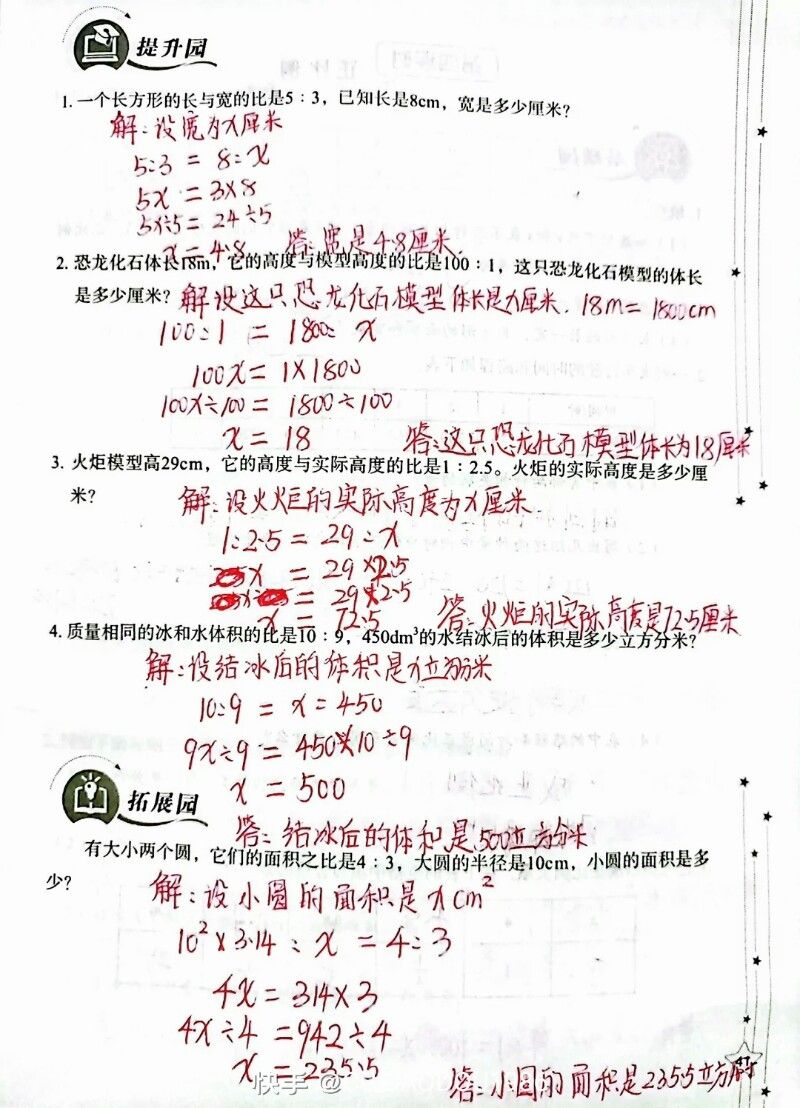 提升园
1. 一个长方形的长与宽的比是5：3，已知长是8cm，宽是多少厘米？
解：设宽为x厘米
5:3 = 8:x
5x = 3×8
5x÷5 = 24÷5
x = 4.8 答：宽是4.8厘米.
2. 恐龙化石体长18m，它的高度与模型高度的比是100：1，这只恐龙化石模型的体长
是多少厘米？ 解设这只恐龙化石模型体长是x厘米. 18m = 1800cm
100:1 = 1800: x
100x = 1×1800
100x÷100 = 1800÷100
x = 18 答：这只恐龙化石模型体长为18厘米
3. 火炬模型高29cm，它的高度与实际高度的比是1：2.5。火炬的实际高度是多少厘
米？ 解：设火炬的实际高度为x厘米
1:2.5 = 29:x
x = 29×2.5
= 29×2.5
x = 72.5 答：火炬的实际高度是72.5厘米
4. 质量相同的冰和水体积的比是10：9，450dm³的水结冰后的体积是多少立方分米？
解：设结冰后的体积是x立方分米
10:9 = x=450
9x÷9 = 450×10÷9
x = 500
拓展园
答：结冰后的体积是500立方分米
有大小两个圆，它们的面积之比是4：3，大圆的半径是10cm，小圆的面积是多
少？ 解：设小圆的面积是xcm²
10²×3.14 : x = 4:3
4x = 314×3
4x÷4 = 942÷4
x = 235.5
答：小圆的面积是235.5立方
快手 @
41